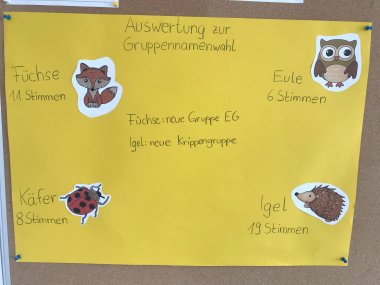 Auswertung zur
Gruppennamenwahl
Füchse
11 Stimmen
Eule
6 Stimmen
Füchse: neue Gruppe EG
Igel: neue Krippengruppe
Käfer
8 Stimmen
Igel
19 Stimmen